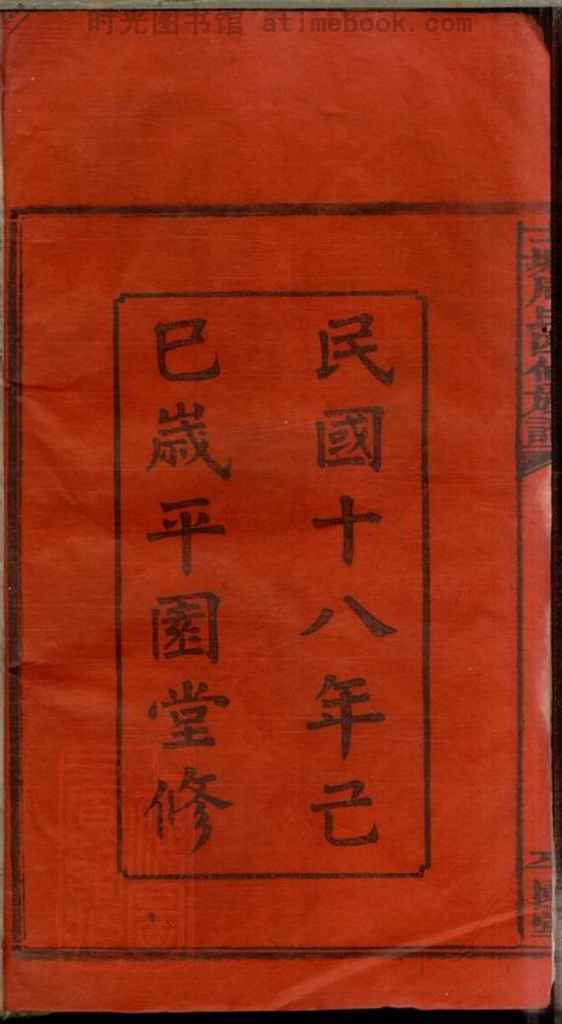 时光图书馆 atimebook.com
民國十八年己
巳歲平園堂修